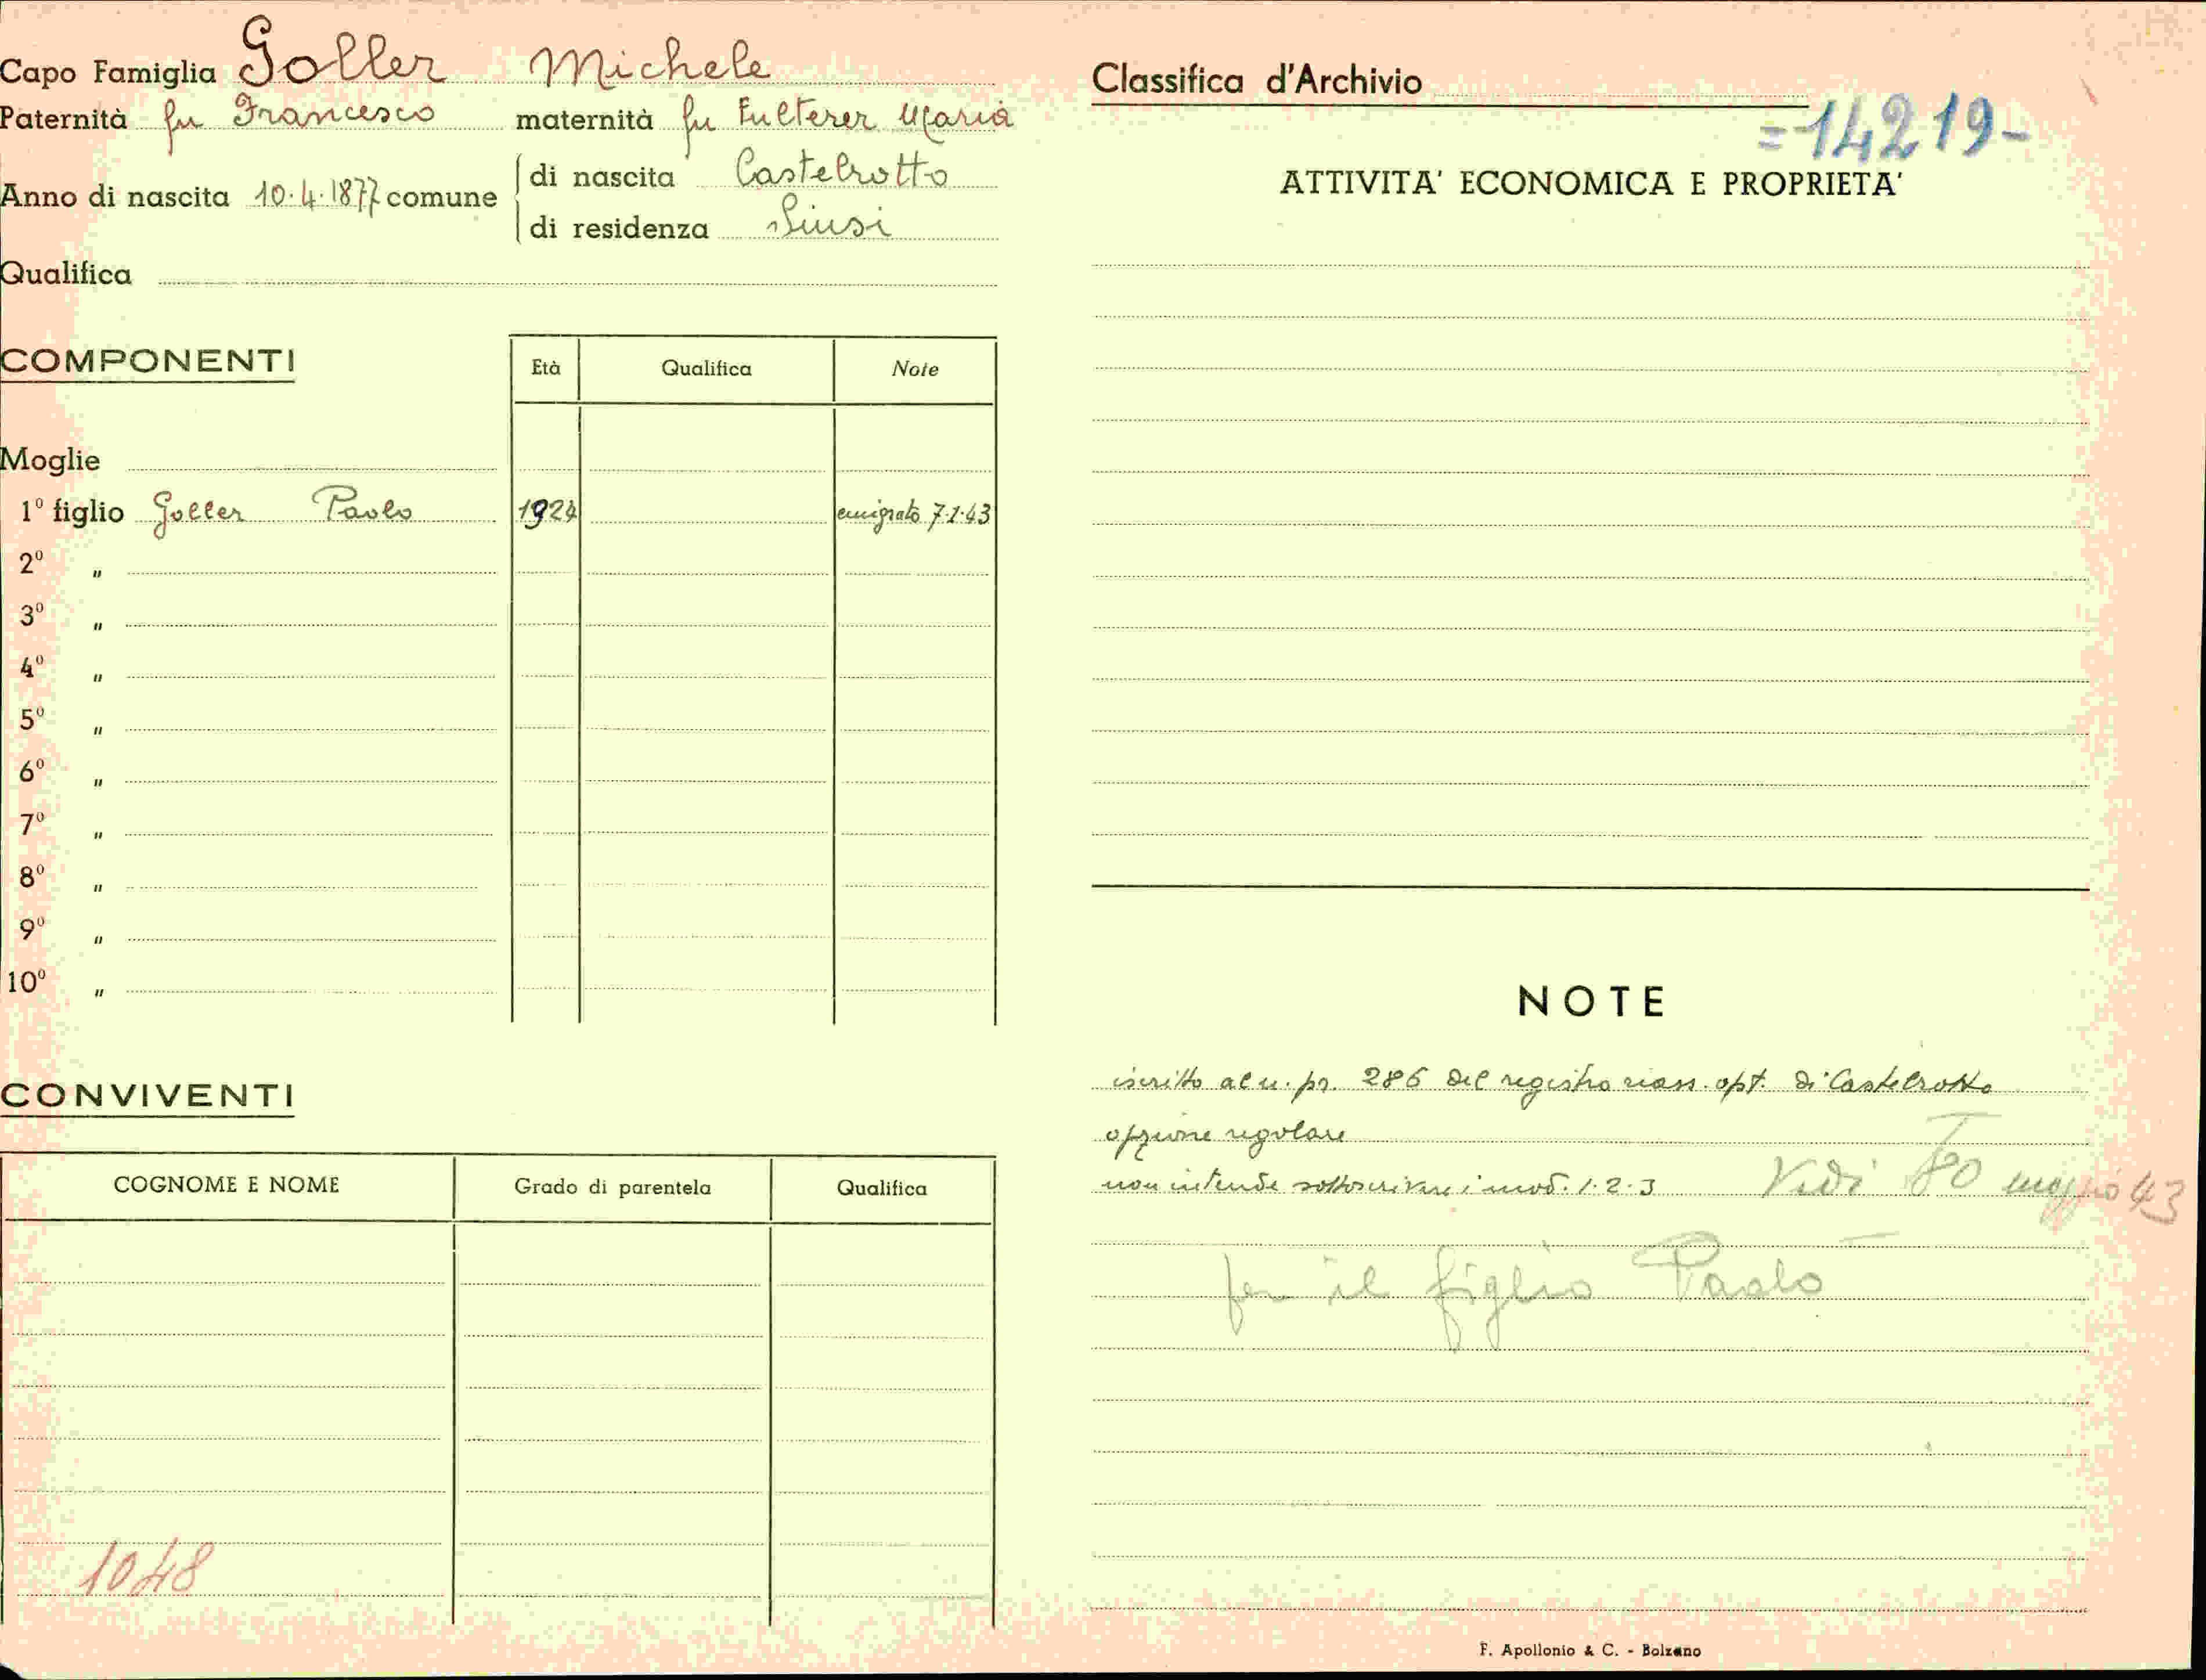 Capo Famiglia Goller Michele
Paternità fu Francesco maternità fu Fulterer Maria
Anno di nascita 10.4.1877 comune di nascita Castelrotto
di residenza Siusi
Qualifica
COMPONENTI
Età Qualifica Note
Moglie
1º figlio Goller Paolo 1924 emigrato 7.1.43
2º "
3º "
4º "
5º "
6º "
7º "
8º "
9º "
10º "
CONVIVENTI
COGNOME E NOME Grado di parentela Qualifica
1048
Classifica d'Archivio
=14219-
ATTIVITA' ECONOMICA E PROPRIETA'
NOTE
iscritto al n. pr. 286 del registro riass. opt. di Castelrotto
opzione regolare
non intende sottoscrivere i mod. 1.2.3 Vedi maggio 43
per il figlio Paolo
F. Apollonio & C. - Bolzano